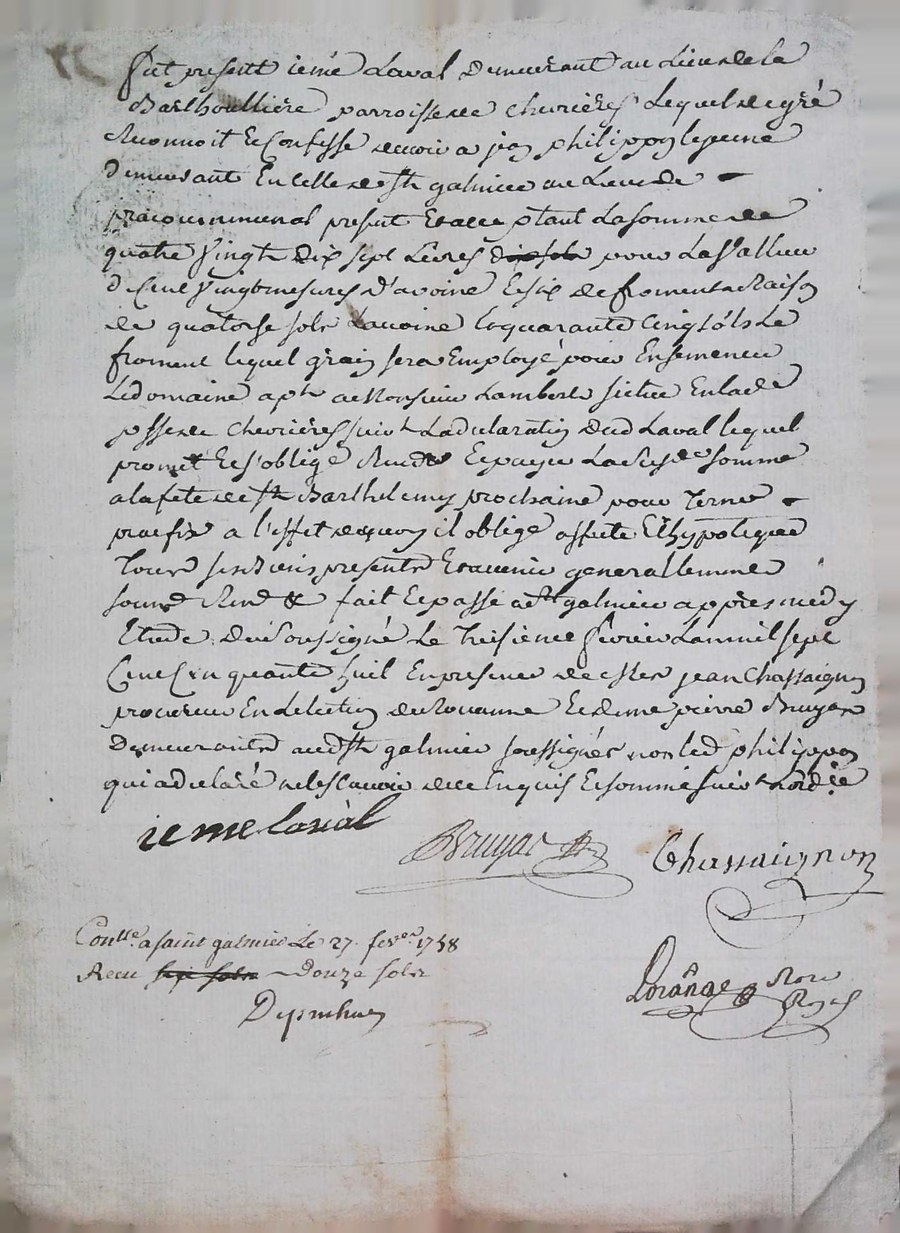 fut present ieme Laval demeurant au Lieu de la
Barlhoullière parroisse de chevrières Lequel de gré
Reconnoit et Confesse devoir a jean philippon le jeune
demeurant En celle de st galmier au Lieu de
present Et acceptant La somme de
quatre vingt dix sept Livres dix sols pour La valleur
de Cent vingt mesures d'avoine Et six de froment a Raison
de quatorse sols Lavoine Et quarante Cinq sols Le
froment lequel grain sera Employé pour Ensemencer
Le domaine apt a Monsieur Lambert situé En lad
psse de chevrières suivt La declaration dud Laval lequel
promet Et s'oblige Rendre Et payer La susd somme
a la fete de st Barthelemy prochaine pour Terme
prefix a l'effet de quoy il oblige affecte Et hypoteque
Tous ses Biens presents Et avenir generallement
soumd Rend & fait Et passé a st galmier appres midy
Etude du soussigné Le Treisieme fevrier Lan mil sept
Cent Cinquante huit En presence de jean Chassaignon
procureur En Lelection de Rouanne Et de me pierre Bruyas
demeurants aud st galmier soussignés non led philippon
qui a declaré ne le sçavoir de ce Enquis Et sommé suivt Lordce
ieme laval
Bruyas
Chassaignon
Conlle. a saint galmier Le 27. fever 1758
Recu sept sols douze sols
Lorange
Nore
Royal